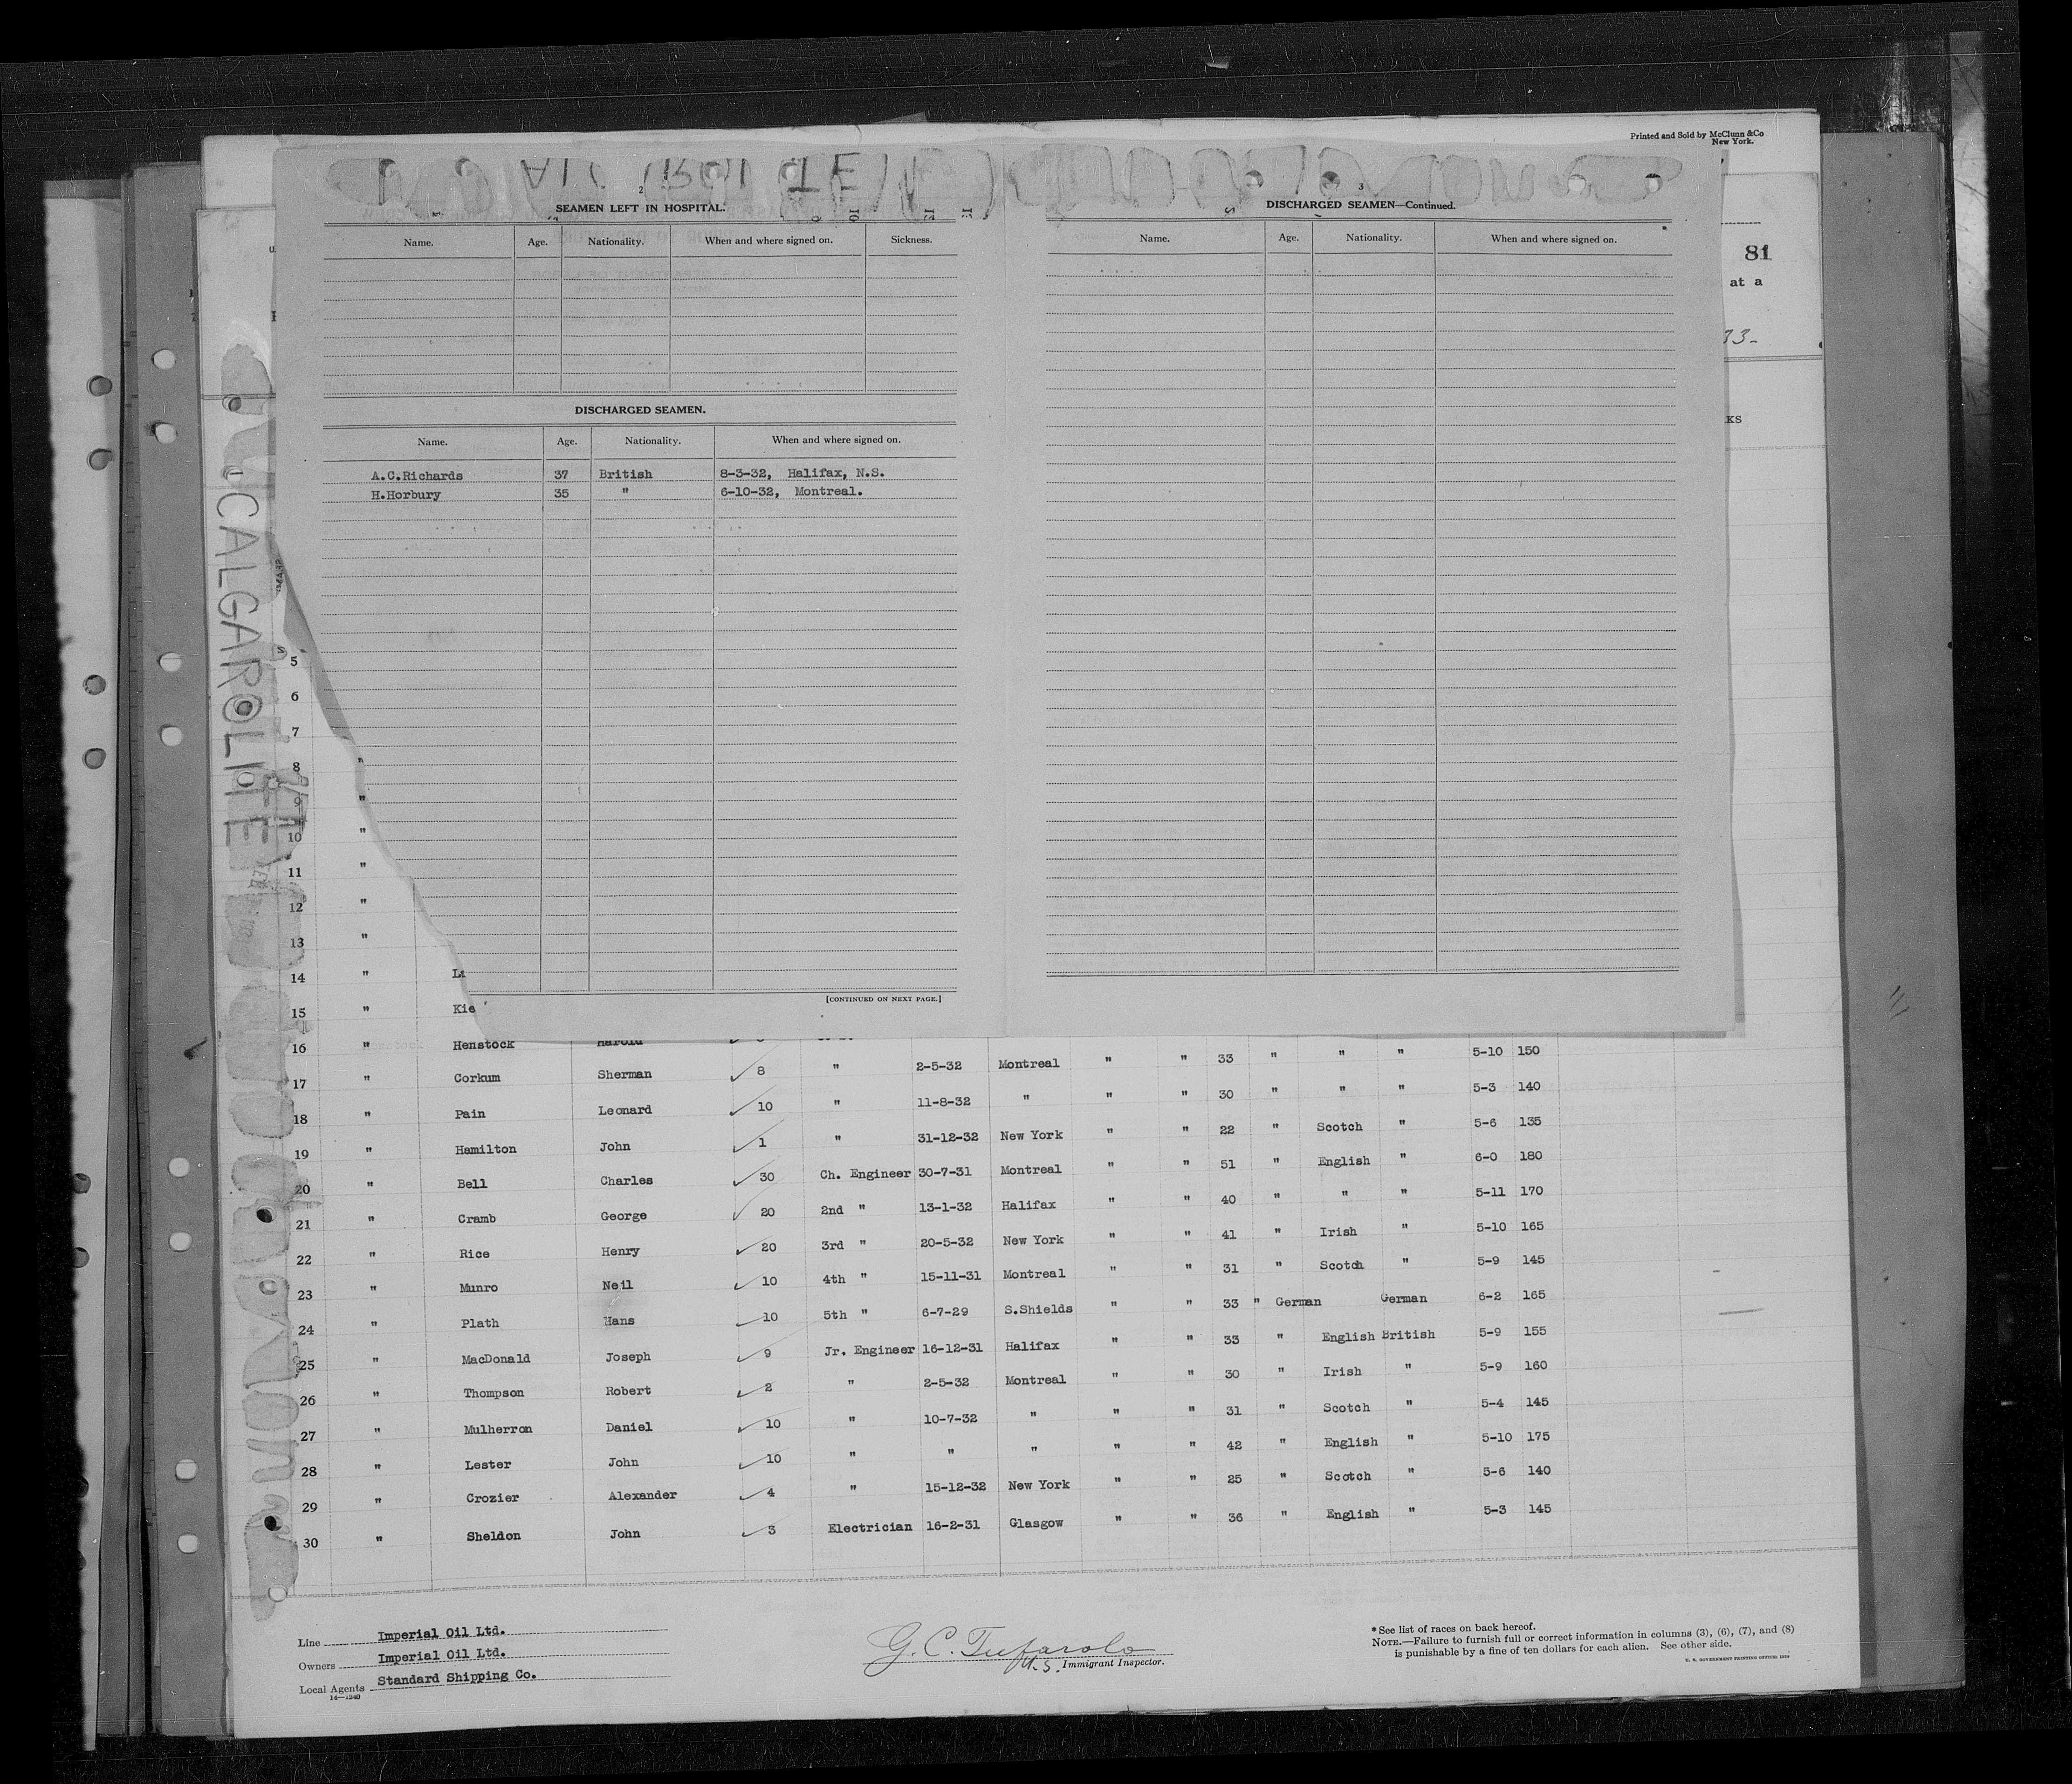 Printed and Sold by McClunn & Co
New York.
2
SEAMEN LEFT IN HOSPITAL.
Name. Age. Nationality. When and where signed on. Sickness.
DISCHARGED SEAMEN.
Name. Age. Nationality. When and where signed on.
A.C.Richards 37 British 8-3-32, Halifax, N.S.
H.Horbury 35 " 6-10-32, Montreal.
[CONTINUED ON NEXT PAGE.]
3
DISCHARGED SEAMEN—Continued.
Name. Age. Nationality. When and where signed on.
81
at a
33-
KS
CALGAROLITE
5
6
7
8 "
9 "
10 "
11 "
12 "
13 "
14 " Li
15 " Kie
16 " Henstock Harold
5-10 150
17 " Corkum Sherman 8 " 2-5-32 Montreal " " 33 " " " 5-3 140
18 " Pain Leonard 10 " 11-8-32 " " " 30 " " " 5-6 135
19 " Hamilton John 1 " 31-12-32 New York " " 22 " Scotch " 6-0 180
20 " Bell Charles 30 Ch. Engineer 30-7-31 Montreal " " 51 " English " 5-11 170
21 " Cramb George 20 2nd " 13-1-32 Halifax " " 40 " " " 5-10 165
22 " Rice Henry 20 3rd " 20-5-32 New York " " 41 " Irish " 5-9 145
23 " Munro Neil 10 4th " 15-11-31 Montreal " " 31 " Scotch " 6-2 165
24 " Plath Hans 10 5th " 6-7-29 S.Shields " " 33 " German German 5-9 155
25 " MacDonald Joseph 9 Jr. Engineer 16-12-31 Halifax " " 33 " English British 5-9 160
26 " Thompson Robert 2 " 2-5-32 Montreal " " 30 " Irish " 5-4 145
27 " Mulherron Daniel 10 " 10-7-32 " " " 31 " Scotch " 5-10 175
28 " Lester John 10 " " " " " 42 " English " 5-6 140
29 " Crozier Alexander 4 " 15-12-32 New York " " 25 " Scotch " 5-3 145
30 " Sheldon John 3 Electrician 16-2-31 Glasgow " " 36 " English "
Line Imperial Oil Ltd.
Owners Imperial Oil Ltd.
Local Agents Standard Shipping Co.
14—1240
G. C. Tufarolo
U.S. Immigrant Inspector.
*See list of races on back hereof.
NOTE.—Failure to furnish full or correct information in columns (3), (6), (7), and (8)
is punishable by a fine of ten dollars for each alien. See other side.
U. S. GOVERNMENT PRINTING OFFICE: 1929